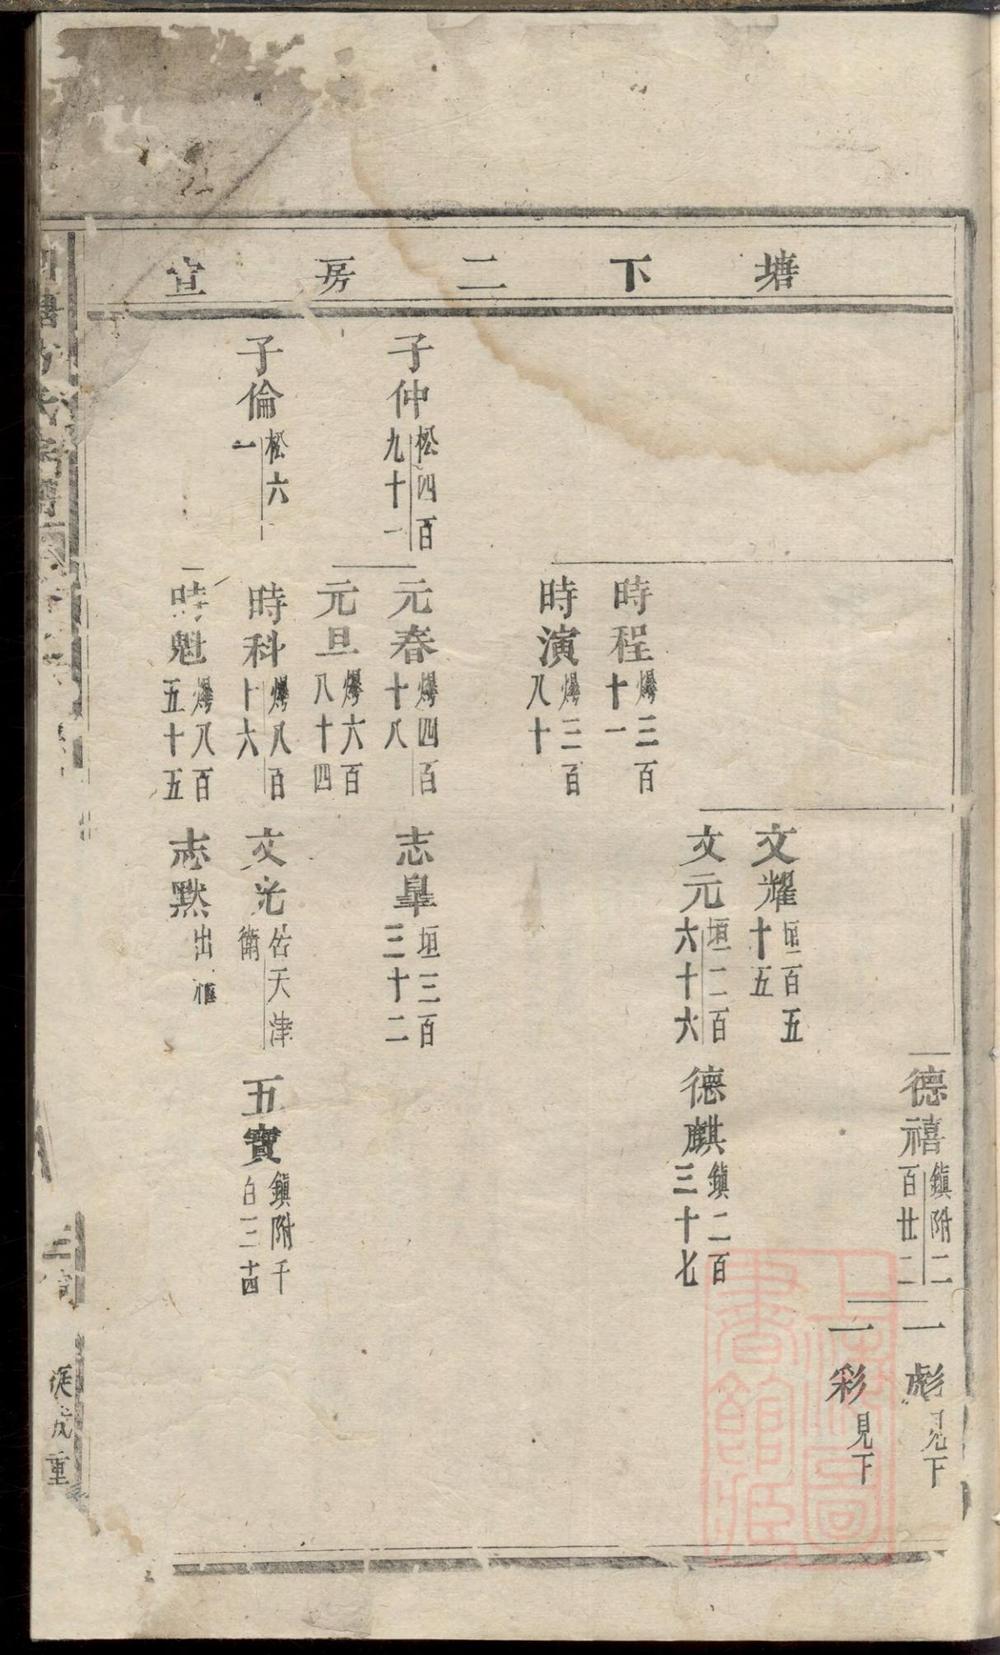 塘下二房宣
德禧 鎮附二百廿二
一彪 見下
一彩 見下
文耀 垣二百五十五
文元 垣二百六十六
德麒 鎮二百三十七
時程 爆三百十一
時演 爆三百八十
子仲 松四百九十一
元春 爆四百十八
志皐 垣三百三十二
元旦 爆六百八十四
子倫 松六一
時科 爆八百十六
文光 佐天津衛
五寶 鎮附千百三十四
時魁 爆八百五十五
志默 出
上海圖書館藏